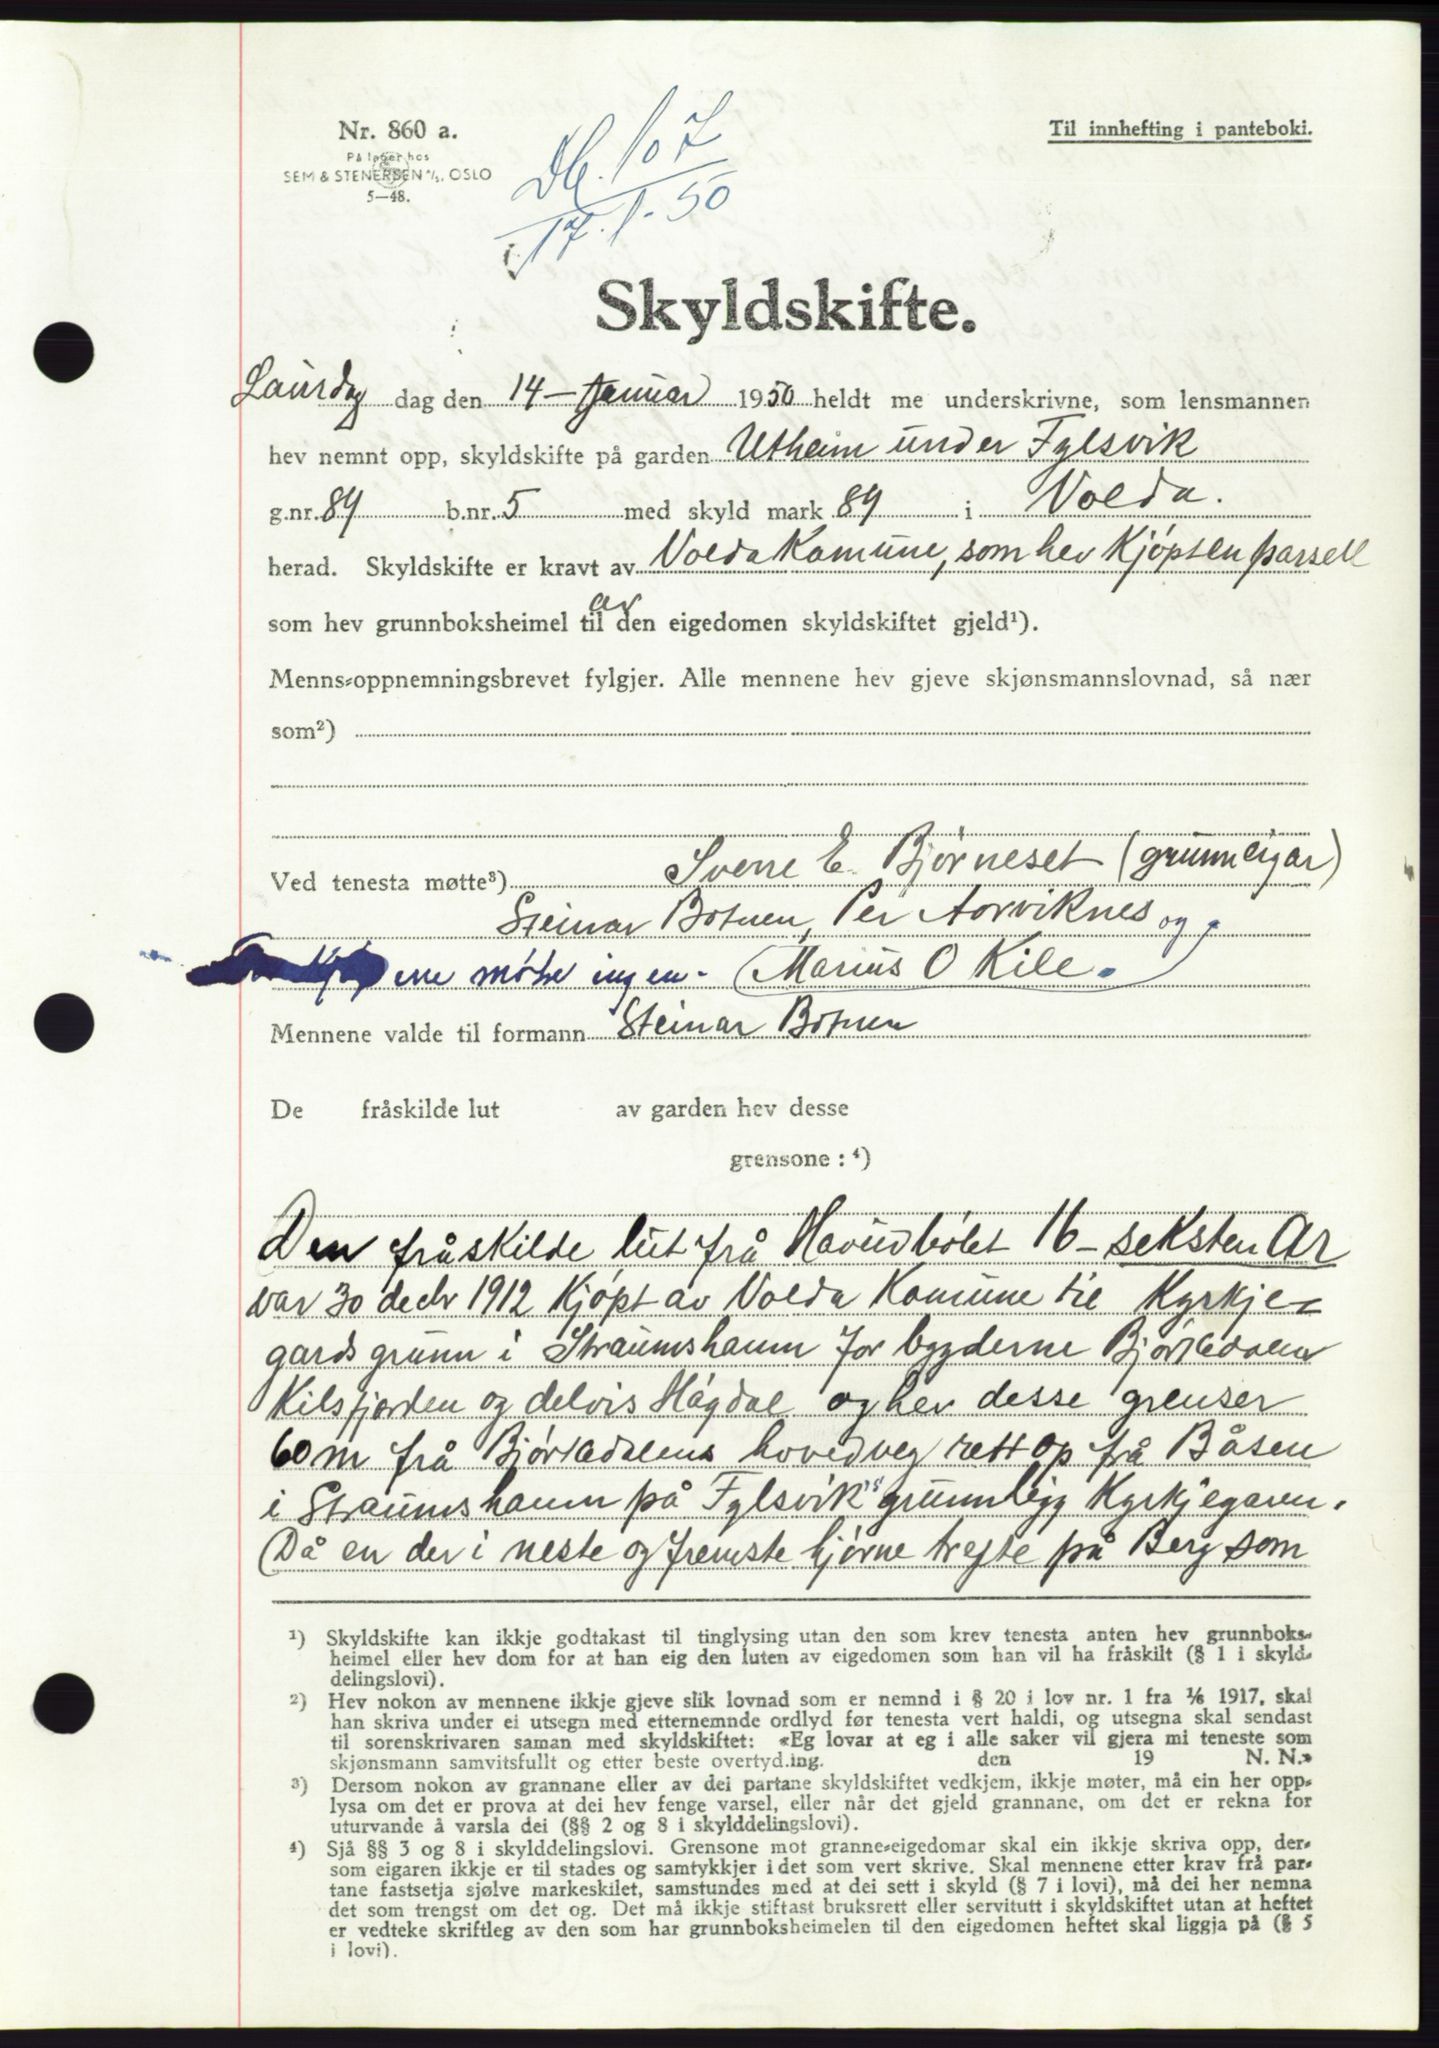 Nr. 860 a.
På lager hos
SEM & STENERSEN A/S, OSLO
5—48.
Til innhefting i panteboki.
Db. 107
17.1.-50
Skyldskifte.
Laurdag dag den 14 - Januar 1950 heldt me underskrivne, som lensmannen
hev nemnt opp, skyldskifte på garden Utheim under Fylsvik
g.nr. 84 b.nr. 5 med skyld mark 84 i Volda.
herad. Skyldskifte er kravt av Volda Komune, som hev Kjøpt en parsell
av
som hev grunnboksheimel til den eigedomen skyldskiftet gjeld¹).
Menns-oppnemningsbrevet fylgjer. Alle mennene hev gjeve skjønsmannslovnad, så nær
som²)
Ved tenesta møtte³) Sverre E. Bjørneset (grunneigar)
Steinar Botnen, Per Aarviknes og
møtte ingen. Marius O Kile.
Mennene valde til formann Steinar Botnen
De fråskilde lut av garden hev desse
grensone : ⁴)
Den fråskilde lut frå Hovudbølet 16 - seksten Ar
var 30 decbr 1912 Kjøpt av Volda Komune til Kyrkje-
gardsgrunn i Straumshamn for bygderne Bjørkedalen
Kilsfjorden og delvis Högdal og hev desse grenser
60 m frå Bjørkedalens hovedveg rett op frå Båsen
i Straumshamn på Fylsvik's grunn ligg Kyrkjegaren.
Då en der i neste og fremste hjørne trefte på Berg som
¹) Skyldskifte kan ikkje godtakast til tinglysing utan den som krev tenesta anten hev grunnboks-
heimel eller hev dom for at han eig den luten av eigedomen som han vil ha fråskilt (§ 1 i skyld-
delingslovi).
²) Hev nokon av mennene ikkje gjeve slik lovnad som er nemnd i § 20 i lov nr. 1 fra 1/6 1917, skal
han skriva under ei utsegn med etternemnde ordlyd før tenesta vert haldi, og utsegna skal sendast
til sorenskrivaren saman med skyldskiftet: «Eg lovar at eg i alle saker vil gjera mi teneste som
skjønsmann samvitsfullt og etter beste overtyd.ing. den 19 N. N.»
³) Dersom nokon av grannane eller av dei partane skyldskiftet vedkjem, ikkje møter, må ein her opp-
lysa om det er prova at dei hev fenge varsel, eller når det gjeld grannane, om det er rekna for
uturvande å varsla dei (§§ 2 og 8 i skylddelingslovi).
⁴) Sjå §§ 3 og 8 i skylddelingslovi. Grensone mot granne-eigedomar skal ein ikkje skriva opp, der-
som eigaren ikkje er til stades og samtykkjer i det som vert skrive. Skal mennene etter krav frå par-
tane fastsetja sjølve markeskilet, samstundes med at dei sett i skyld (§ 7 i lovi), må dei her nemna
det som trengst om det og. Det må ikkje stiftast bruksrett eller servitutt i skyldskiftet utan at heftet
er vedteke skriftleg av den som har grunnboksheimelen til den eigedomen heftet skal liggja på (§ 5
i lovi).